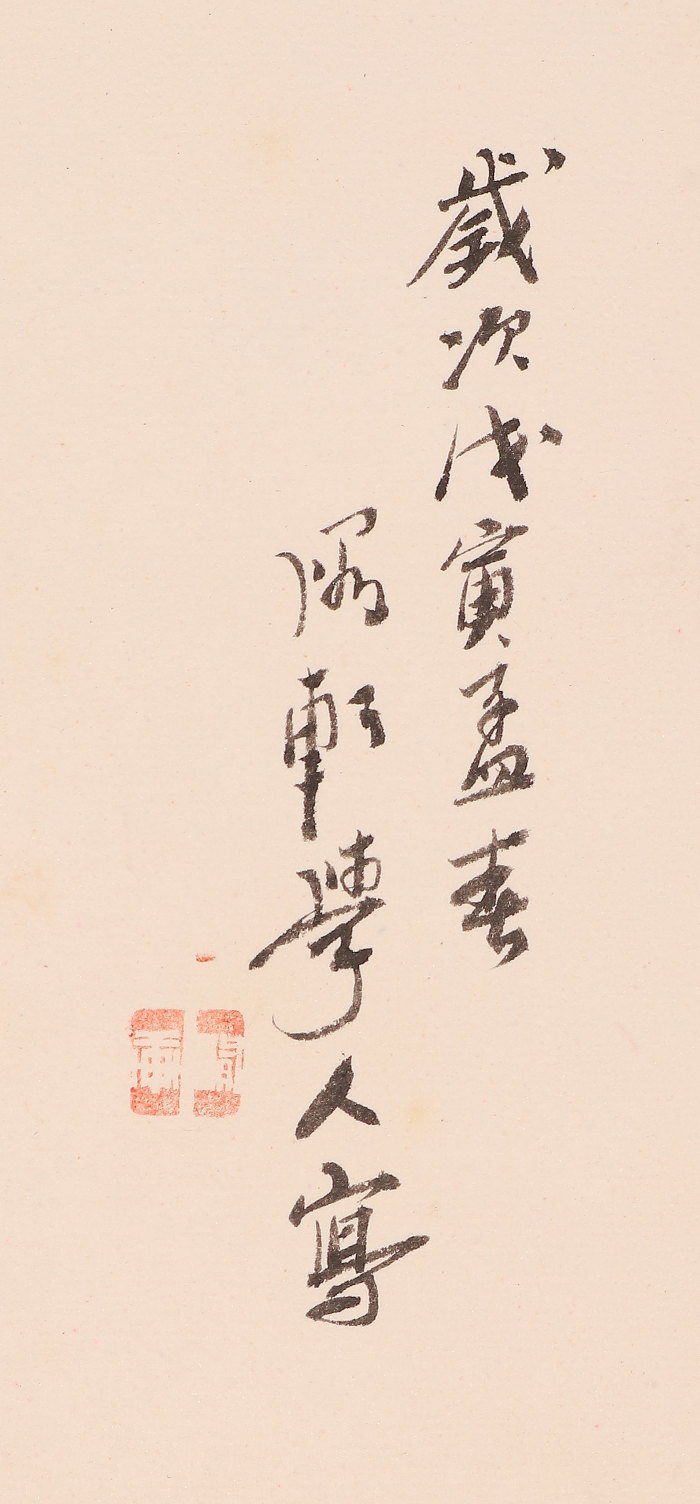 歲次戊寅孟春
軒學人寫